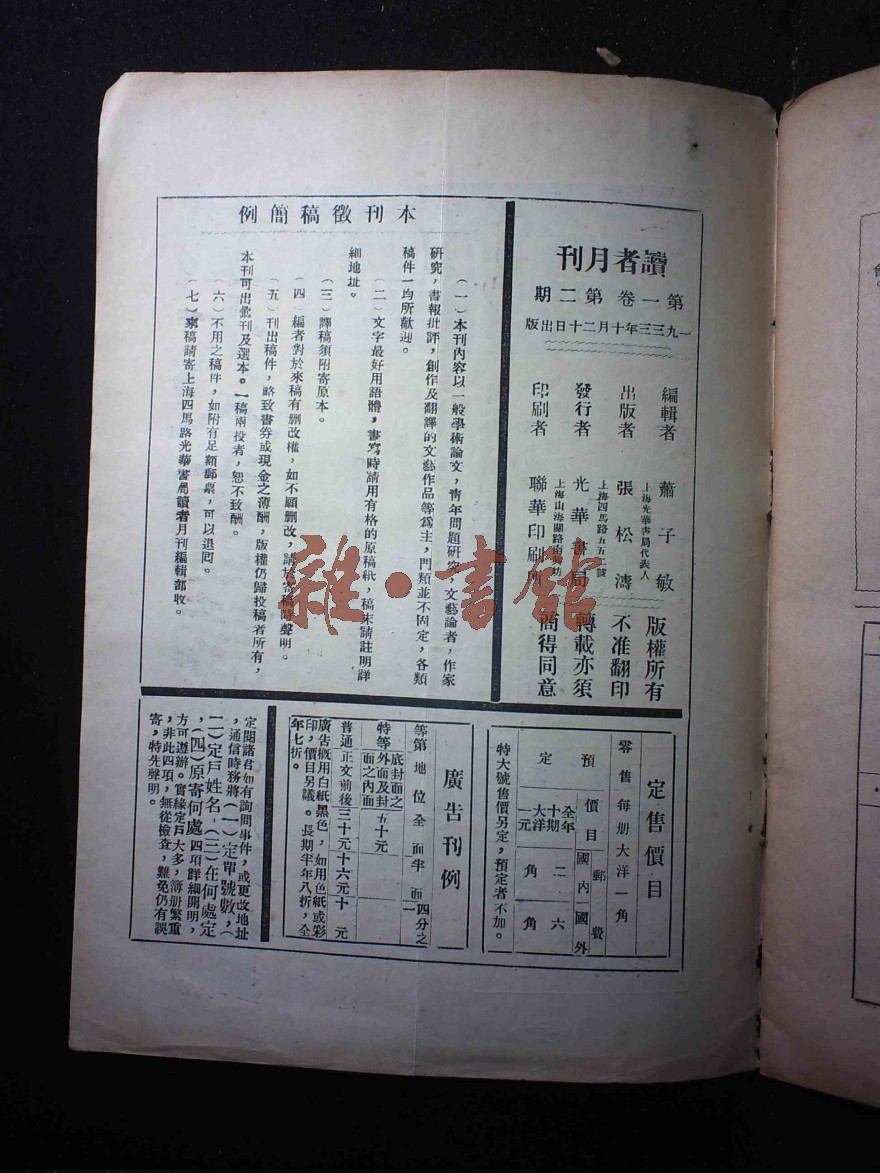 讀者月刊
第一卷第二期
一九三三年十月二十日出版
編輯者 蕭子敏
出版者 張松濤
上海光華書局代表人
發行者 光華書局
上海四馬路五五二號
印刷者 聯華印刷
上海山海關路
版權所有
不准翻印
轉載亦須
商得同意
本刊徵稿簡例
(一)本刊內容以一般學術論文,靑年問題研究,文藝論者,作家
研究,書報批評,創作及翻譯的文藝作品等爲主,門類並不固定,各類
稿件一均所歡迎。
(二)文字最好用語體,書寫時請用有格的原稿紙,稿末請註明詳
細地址。
(三)譯稿須附寄原本。
(四)編者對於來稿有删改權,如不願删改,請於寄稿時聲明。
(五)刊出稿件,略致書券或現金之薄酬,版權仍歸投稿者所有,
本刊可出彙刊及選本。一稿兩投者,恕不致酬。
(六)不用之稿件,如附有足額郵票,可以退囘。
(七)來稿請寄上海四馬路光華書局讀者月刊編輯部收。
定售價目
零售每册大洋一角
預定
價目 郵費
國內 國外
全年十期大洋一元 二角 六角
特大號售價另定,預定者不加。
廣告刊例
等第 地位 全面 半面 四分之一
特等 底封面之外面及封面之內面 五十元
普通 正文前後 三十元 十六元 十元
廣告概用白紙黑色,如用色紙或彩
印,價目另議。長期半年八折,全
年七折。
定閱諸君如有詢問事件,或更改地址
,通信時務將(一)定單號數,(
二)定戶姓名,(三)在何處定
,(四)原寄何處四項詳細開明,
方可遵辦。實緣定戶大多,簿册繁重
,非此四項,無從檢查,難免仍有誤
寄,特先聲明。
雜·書館